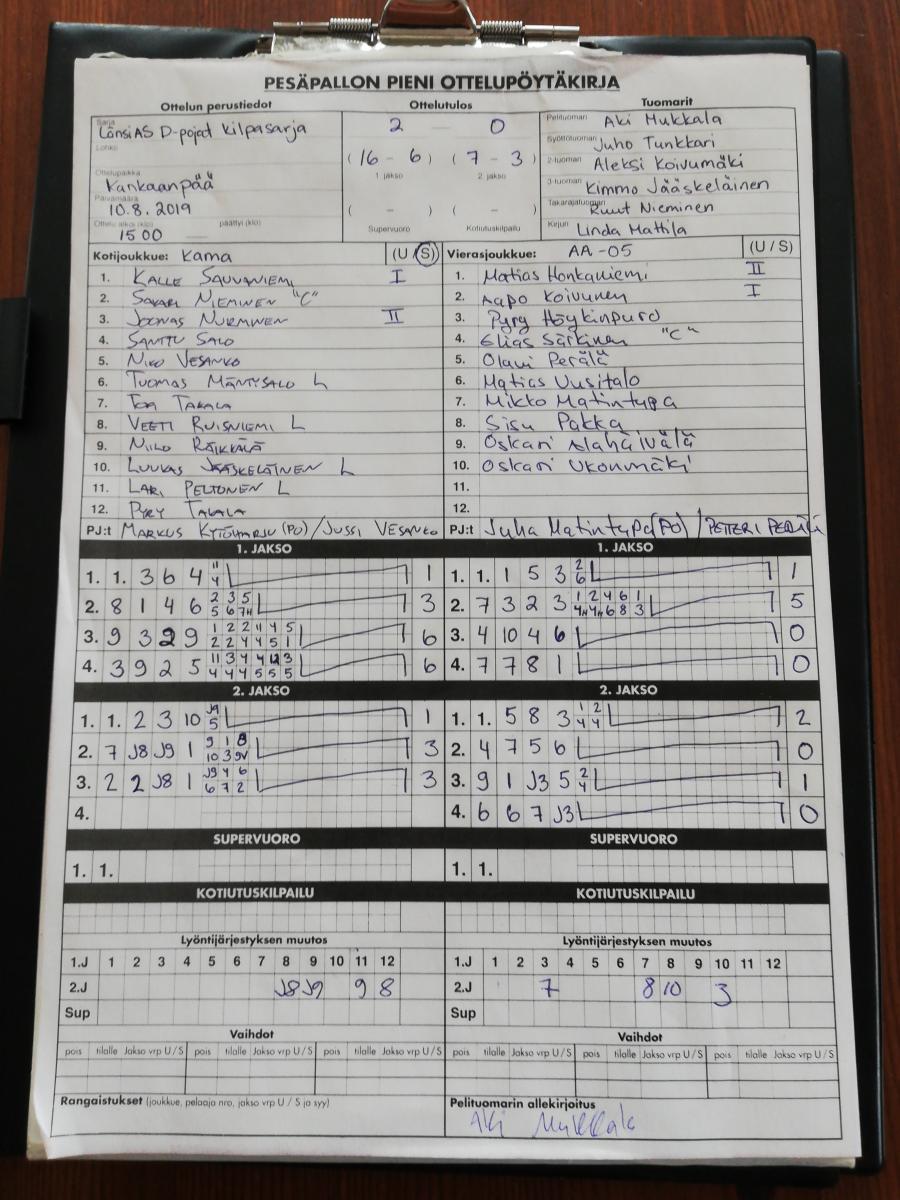 PESÄPALLON PIENI OTTELUPÖYTÄKIRJA
Ottelun perustiedot Ottelutulos Tuomarit
Sarja LänsiAS D-pojat kilpasarja 2 — 0 Pelituomari Aki Mukkala
Lohko Syöttötuomari Juho Tunkkari
(16 - 6) (7 - 3) 2-tuomari Aleksi Koivumäki
Ottelupaikka Kankaanpää 1 jakso 2. jakso 3-tuomari Kimmo Jääskeläinen
Päivämäärä 10.8. 2019 ( - ) ( - ) Takarajatuomari Ruut Nieminen
Ottelu alkoi (klo) 15 00 päättyi (klo) Supervuoro Kotiutuskilpailu Kirjuri Linda Mattila
Kotijoukkue: Kama (U/S) Vierasjoukkue: AA-05 (U/S)
1. KALLE SAUVANIEMI I 1. Matias Honkaniemi II
2. SAKARI NIEMINEN "C" 2. Aapo Koivunen I
3. JOONAS NURMINEN II 3. Pyry Höykinpuro
4. SANTTU SALO 4. Elias Särkinen "C"
5. NIKO VESANKO 5. Olavi Perälä
6. TUOMAS MÄNTYSALO L 6. Matias Uusitalo
7. TOA TAKALA 7. Mikko Matintupa
8. VEETI RUISNIEMI L 8. Sisu Pakka
9. NIILO RÄIKKÄLÄ 9. Oskari Alahäivälä
10. LUUKAS JÄÄSKELÄINEN L 10. Oskari Ukonmäki
11. LARI PELTONEN L 11.
12. PYRY TAKALA 12.
PJ:t MARKUS KYTÖHARJU (PO) / JUSSI VESANKO PJ:t Juha Matintupa (PO) / PETTERI PERÄLÄ
1. JAKSO 1. JAKSO
1. 1. 3 6 4 11/4 1 1. 1. 1 5 3 2/6 1
2. 8 1 4 6 2/5 3/6 5/7H 3 2. 7 3 2 3 1/4H 2/4H 4/6 6/8 1/3 5
3. 9 3 2 9 1/2 2/2 2/4 4/4 4/5 5/1 6 3. 4 10 4 6 0
4. 3 9 2 5 11/4 3/4 4/4 4/5 12/5 3/5 6 4. 7 7 8 1 0
2. JAKSO 2. JAKSO
1. 1. 2 3 10 J9/5 1 1. 1. 5 8 3 1/4 2/4 2
2. 7 J8 J9 1 9/10 1/3 8/9V 3 2. 4 7 5 6 0
3. 2 2 J8 1 J9/6 4/7 6/2 3 3. 9 1 J3 5 2/4 1
4. 4. 6 6 7 J3 0
SUPERVUORO SUPERVUORO
1. 1. 1. 1.
KOTIUTUSKILPAILU KOTIUTUSKILPAILU
Lyöntijärjestyksen muutos Lyöntijärjestyksen muutos
1.J 1 2 3 4 5 6 7 8 9 10 11 12 1.J 1 2 3 4 5 6 7 8 9 10 11 12
2.J J8 J9 9 8 2.J 7 8 10 3
Sup Sup
Vaihdot Vaihdot
pois tilalle Jakso vrp U/S pois tilalle Jakso vrp U/S pois tilalle Jakso vrp U/S pois tilalle Jakso vrp U/S pois tilalle Jakso vrp U/S pois tilalle Jakso vrp U/S
Rangaistukset (joukkue, pelaaja nro, jakso vrp U/S ja syy) Pelituomarin allekirjoitus
Aki Mukkala